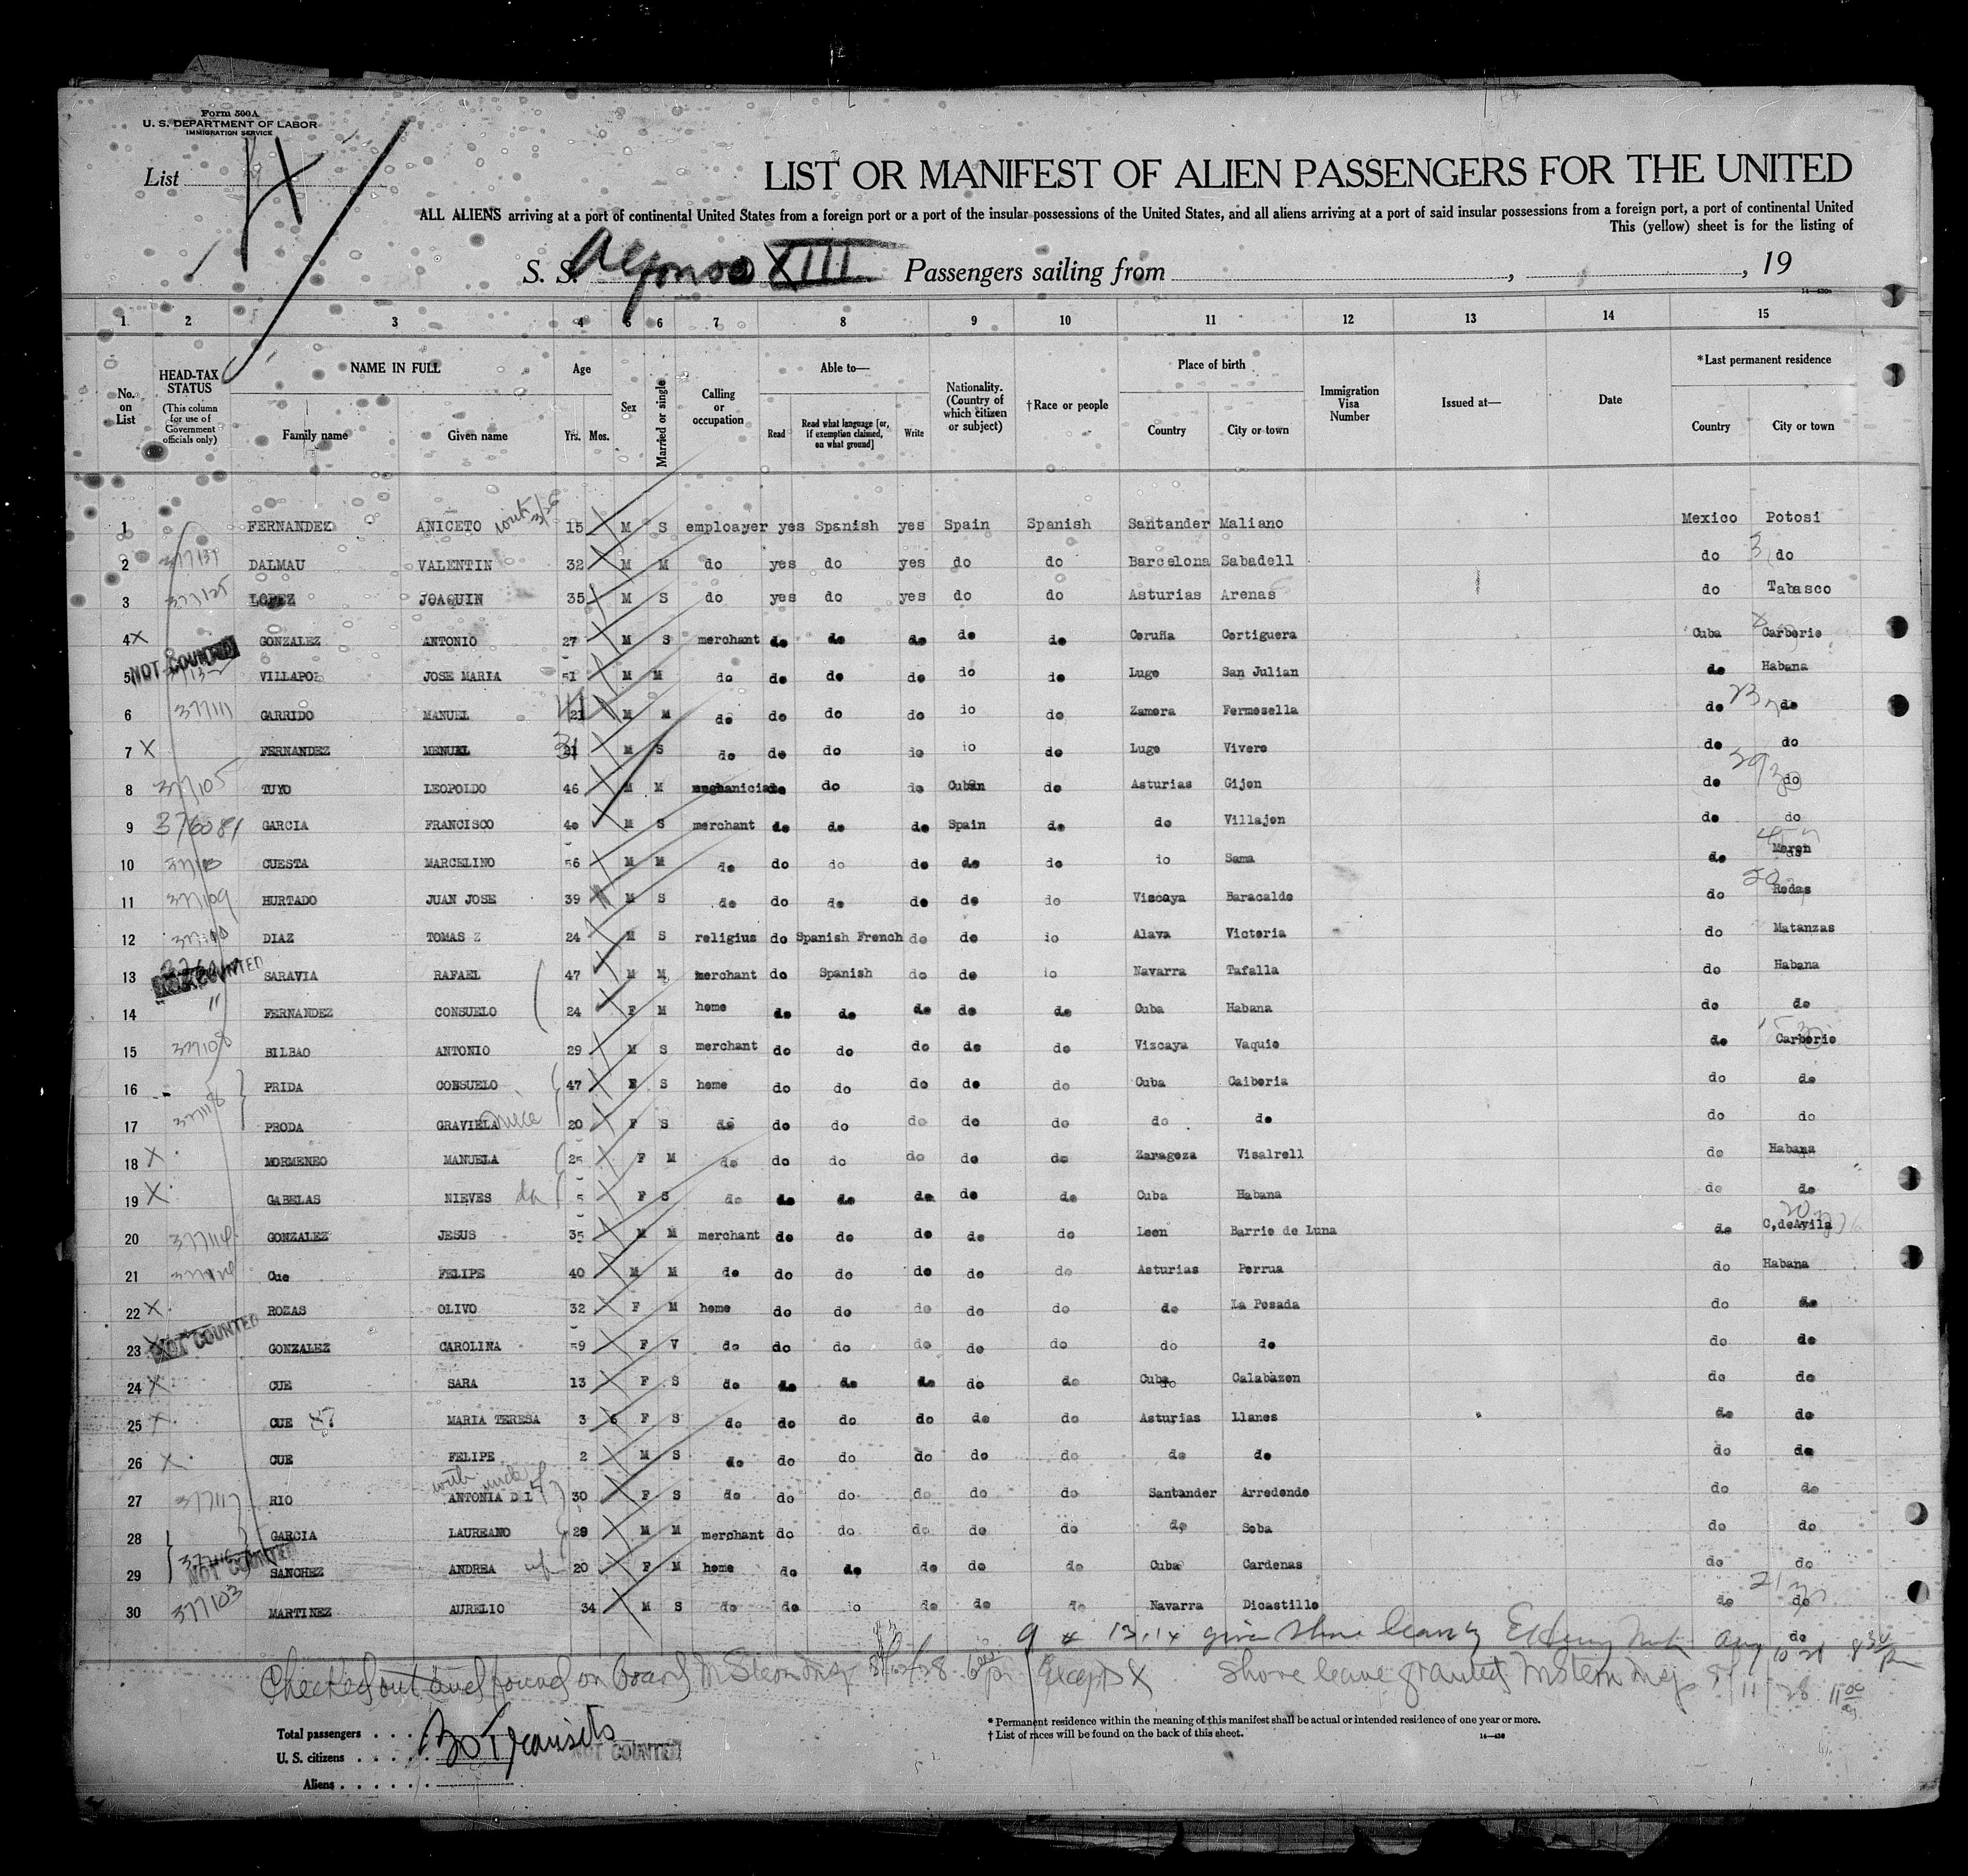 Form 500A
U. S. DEPARTMENT OF LABOR
IMMIGRATION SERVICE
List
LIST OR MANIFEST OF ALIEN PASSENGERS FOR THE UNITED
ALL ALIENS arriving at a port of continental United States from a foreign port or a port of the insular possessions of the United States, and all aliens arriving at a port of said insular possessions from a foreign port, a port of continental United
This (yellow) sheet is for the listing of
S. S. Alfonso XIII Passengers sailing from , , 19
1 2 3 4 5 6 7 8 9 10 11 12 13 14 15
No. on List
HEAD-TAX STATUS
(This column for use of Government officials only)
NAME IN FULL
Family name Given name
Age
Yrs. Mos.
Sex
Married or single
Calling or occupation
Able to—
Read
Read what language [or, if exemption claimed, on what ground]
Write
Nationality. (Country of which citizen or subject)
†Race or people
Place of birth
Country City or town
Immigration Visa Number
Issued at—
Date
*Last permanent residence
Country City or town
1 FERNANDEZ ANICETO 15 M S emploayer yes Spanish yes Spain Spanish Santander Maliano Mexico Potosi
2 DALMAU VALENTIN 32 M M do yes do yes do do Barcelona Sabadell do do
3 377125 LOPEZ JOAQUIN 35 M S do yes do yes do do Asturias Arenas do Tabasco
4 X GONZALEZ ANTONIO 27 M S merchant do do do do do Coruña Cortiguera Cuba Carborio
NOT COUNTED
5 VILLAPOL JOSE MARIA 51 M M do do do do do do Lugo San Julian do Habana
6 377111 GARRIDO MANUEL 21 M M do do do do io do Zamora Fermosella do do
7 X FERNANDEZ MENUEL 31 M S do do do do io do Lugo Vivero do do
8 377105 TUYO LEOPOLDO 46 M M do do do Cuban do Asturias Gijon do do
9 376081 GARCIA FRANCISCO 40 M S merchant do do do Spain do do Villajon do do
10 CUESTA MARCELINO 56 M M do do do do do do io Sama do Moron
11 377109 HURTADO JUAN JOSE 39 M S do do do do do do Viscaya Baracaldo do Rodas
12 DIAZ TOMAS Z 24 M S religius do Spanish French do do io Alava Victoria do Matanzas
13 NOT COUNTED SARAVIA RAFAEL 47 M M merchant do Spanish do do io Navarra Tafalla do Habana
14 " FERNANDEZ CONSUELO 24 F M home do do do do do Cuba Habana do do
15 377108 BILBAO ANTONIO 29 M S merchant do do do do do Vizcaya Vaquio do Carborio
16 PRIDA CONSUELO 47 F S home do do do do do Cuba Caiboria do do
17 377118 PRODA GRAVIELA niece 20 F S do do do do do do do do do do
18 X MORMENEO MANUELA 25 F M do do do do do do Zaragoza Visalrell do Habana
19 X GABELAS NIEVES da 5 F S do do do do do do Cuba Habana do do
20 377114 GONZALEZ JESUS 35 M M merchant do do do do do Leon Barrio de Luna do C,deAvila
21 Cue FELIPE 40 M M do do do do do do Asturias Porrua do Habana
22 X ROZAS OLIVO 32 F M home do do do do do do La Posada do do
NOT COUNTED
23 X GONZALEZ CAROLINA 59 F V do do do do do do do do do do
24 X CUE SARA 13 F S do do do do do do Cuba Calabazon do do
25 X CUE MARIA TERESA 3 6 F S do do do do do do Asturias Llanes do do
26 X CUE FELIPE 2 M S do do do do do do do do do do
with uncle
27 377117 RIO ANTONIA D L 30 F S do do do do do do Santander Arredondo do do
28 GARCIA LAUREANO 29 M M merchant do do do do do do Soba do do
29 NOT COUNTED SANCHEZ ANDREA wf 20 F M home do do do do do Cuba Cardenas do do
30 377103 MARTINEZ AURELIO 34 M S do do do do do do Navarra Dicastillo do do
do
9 & 13, 14 given shore leave by Aug 10 28 8 30
Checked out and found on board M Stern Insp Except X Shore leave granted M Stern Insp 8/11/28 11 00
Total passengers . . . . 30 Transits
U. S. citizens . . . . . NOT COUNTED
Aliens . . . . . .
* Permanent residence within the meaning of this manifest shall be actual or intended residence of one year or more.
† List of races will be found on the back of this sheet.
14—430